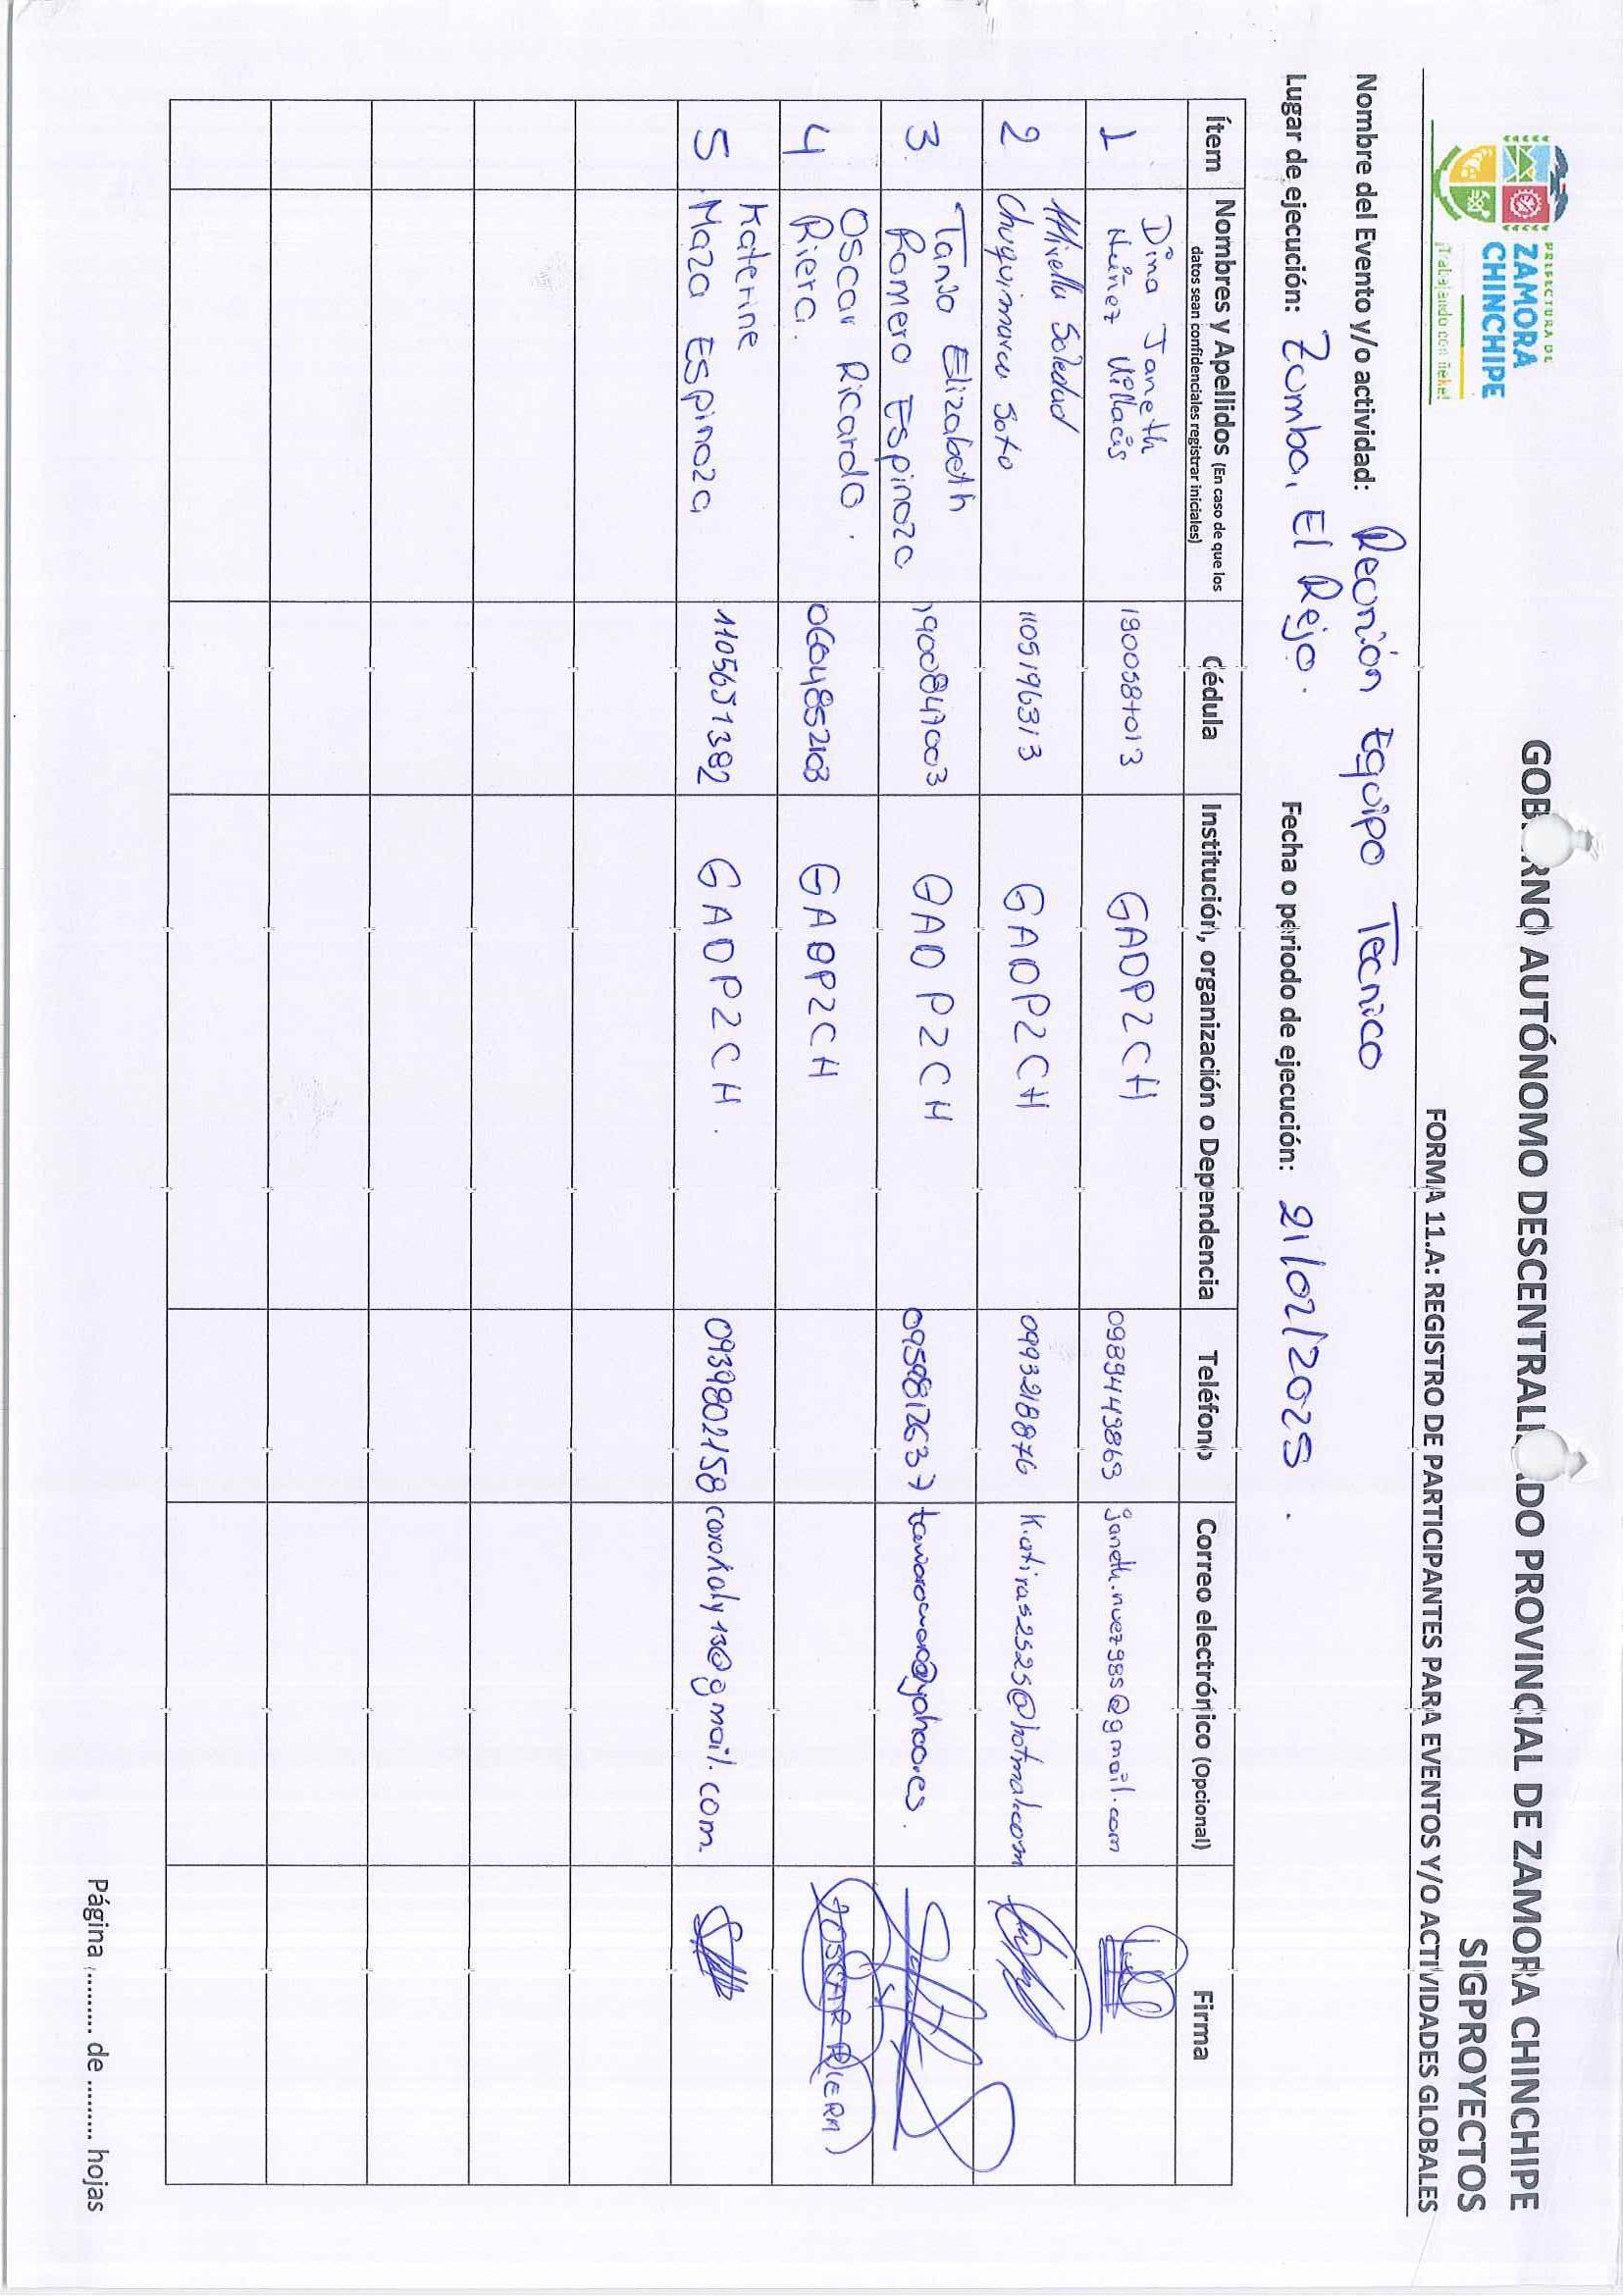 PREFECTURA DE
ZAMORA
CHINCHIPE
¡Trabajando con ñeke!
GOBIERNO AUTÓNOMO DESCENTRALIZADO PROVINCIAL DE ZAMORA CHINCHIPE
SIGPROYECTOS
FORMA 11.A: REGISTRO DE PARTICIPANTES PARA EVENTOS Y/O ACTIVIDADES GLOBALES
Nombre del Evento y/o actividad: Reunión Equipo Tecnico
Lugar de ejecución: Zumba, El Rejo. Fecha o periodo de ejecución: 21/02/2025.
Ítem Nombres y Apellidos (En caso de que los datos sean confidenciales registrar iniciales) Cédula Institución, organización o Dependencia Teléfono Correo electrónico (Opcional) Firma
1 Dina Janeth Núñez Villacís GADPZCH
2 Mirella Soledad Chuquimarca Soto 1105196313 GADPZCH 0993218876
3 Tania Elizabeth Romero Espinoza 1900847003 GADPZCH
4 Oscar Ricardo Riera. 0604852103 GADPZCH OSCAR RIERA
5 Katerine Maza Espinoza 1105651382 GADPZCH. 0939802158 carokaly13@gmail.com
Página ......... de ......... hojas